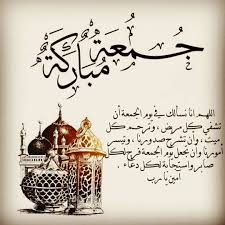 جُمُعَة
مُبَارَكَة
اللهم انا نسألك في يوم الجمعة أن
تشفي كل مريض ، وترحم كل
ميت ، وان تشرح صدورنا ، وتيسر
أمورنا وان تجعل يوم الجمعة فرج لكل
صابر واستجابة لكل دعاء .
امين يا رب